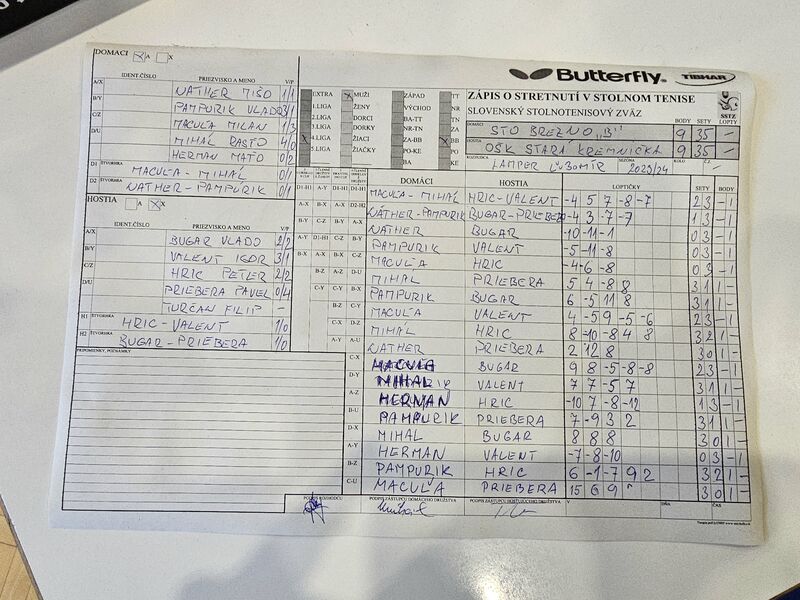 DOMÁCI A X
IDENT.ČÍSLO PRIEZVISKO A MENO V/P
A/X WATHER MIŠO 1/1
B/Y PAMPURIK VLADO 3/1
C/Z MACUĽA MILAN 1/3
D/U MIHAL RASŤO 4/0
HERMAN MAŤO 0/2
D1 ŠTVORHRA MACUĽA - MIHAL 0/1
D2 WATHER-PAMPURIK 0/1
HOSTIA A X
IDENT.ČÍSLO PRIEZVISKO A MENO V/P
A/X BUGAR VLADO 2/2
B/Y VALENT IGOR 3/1
C/Z HRIC PETER 2/2
D/U PRIEBERA PAVEL 0/4
TURČAN FILIP -
H1 ŠTVORHRA HRIC-VALENT 1/0
H2 ŠTVORHRA BUGAR-PRIEBERA 1/0
PRIPOMIENKY, POZNÁMKY
Butterfly. TIBHAR
EXTRA MUŽI ZÁPAD TT
1.LIGA ŽENY VÝCHOD NR
2.LIGA DORCI BA-TT TN
3.LIGA DORKY NR-TN ZA
4.LIGA ŽIACI ZA-BB BB
5.LIGA ŽIAČKY PO-KE PO
BA KE
ZÁPIS O STRETNUTÍ V STOLNOM TENISE
SLOVENSKÝ STOLNOTENISOVÝ ZVÄZ
SSTZ
BODY SETY LOPTY
DOMÁCI STO BREZNO „B" 9 35 -
HOSTIA OŠK STARÁ KREMNIČKA 9 35 -
LAMPER ĽUBOMÍR SEZÓNA 2023/24 KOLO Č.Z.
DOMÁCI HOSTIA LOPTIČKY SETY BODY
MACUĽA - MIHAL HRIC-VALENT -4 5 7 -8 -7 2 3 - 1
WATHER-PAMPURIK BUGAR-PRIEBERA -4 3 -7 -7 1 3 - 1
WATHER BUGAR -10 -11 -1 0 3 - 1
PAMPURIK VALENT -5 -11 -8 0 3 - 1
MACUĽA HRIC -4 -6 -8 0 3 - 1
MIHAL PRIEBERA 5 4 -8 8 3 1 1 -
PAMPURIK BUGAR 6 -5 11 8 3 1 1 -
MACUĽA VALENT 4 -5 9 -5 -6 2 3 - 1
MIHAL HRIC 8 -10 -8 4 8 3 2 1 -
WATHER PRIEBERA 2 12 8 3 0 1 -
MACUĽA BUGAR 9 8 -5 -8 -8 2 3 - 1
MIHAL VALENT 7 7 -5 7 3 1 1 -
HERMAN HRIC -10 7 -8 -12 1 3 - 1
PAMPURIK PRIEBERA 7 -9 3 2 3 1 1 -
MIHAL BUGAR 8 8 8 3 0 1 -
HERMAN VALENT -7 -8 -10 0 3 - 1
PAMPURIK HRIC 6 -1 -7 9 2 3 2 1 -
MACUĽA PRIEBERA 15 6 9 3 0 1 -
PODPIS ROZHODCU PODPIS ZÁSTUPCU DOMÁCEHO DRUŽSTVA PODPIS ZÁSTUPCU HOSŤUJÚCEHO DRUŽSTVA V DŇA ČAS